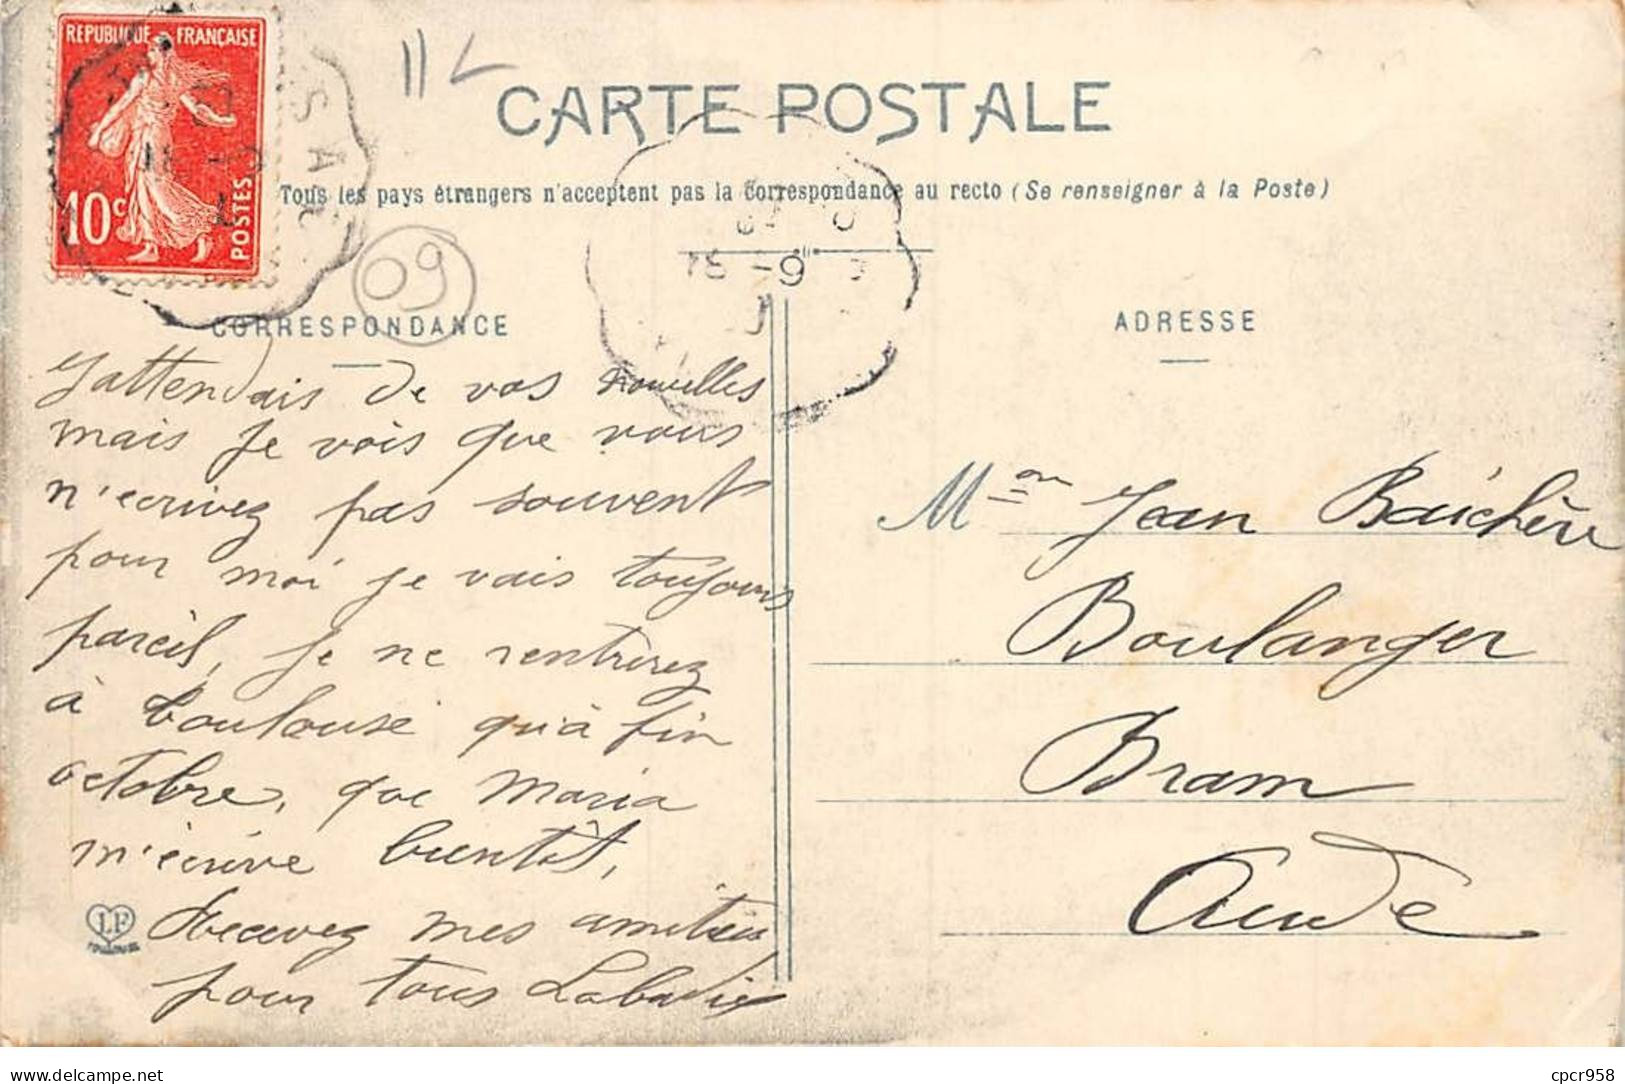 REPUBLIQUE FRANÇAISE
10c
POSTES
CARTE POSTALE
Tous les pays étrangers n'acceptent pas la correspondance au recto (Se renseigner à la Poste)
09
CORRESPONDANCE
J'attendais de vos nouvelles
mais je vois que vous
n'ecrivez pas souvent
pour moi je vais toujours
pareil, je ne rentrerez
à Toulouse qu'à fin
octobre, que Maria
m'écrive bientôt,
Recevez mes amitiés
pour tous Labadie
LF
TOULOUSE
ADRESSE
Mon Jean Baichère
Boulanger
Bram
Aude
delcampe.net
cpcr958